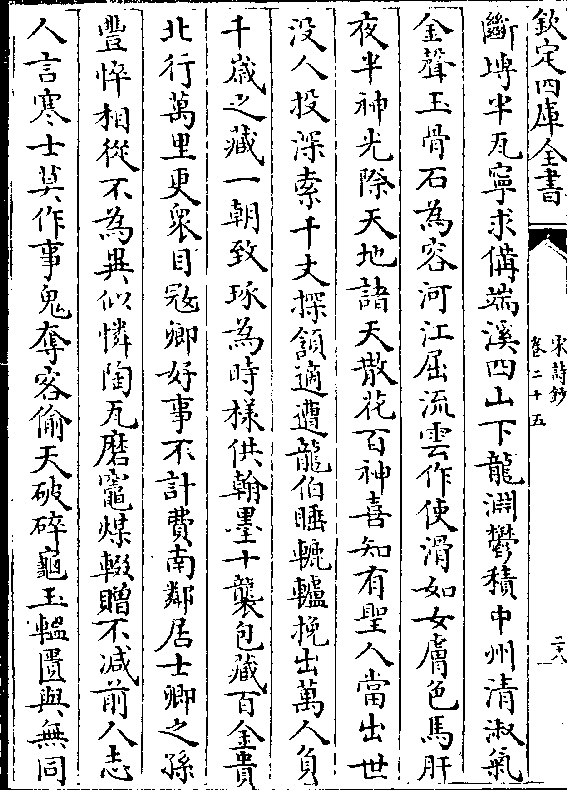 欽定四庫全書
宋詩鈔
卷二十五
二六
斷塼半瓦寧求備端溪四山下龍淵鬱積中州清淑氣
金聲玉骨石為容河江屈流雲作使滑如女膚色馬肝
夜半神光際天地諸天散花百神喜知有聖人當出世
没人投深索千丈探頷適遭龍伯睡轆轤挽出萬人負
千歲之藏一朝致琢為時樣供翰墨十襲包藏百金貴
北行萬里更衆目寇卿好事不計費南鄰居士卿之孫
豐悴相從不為異似憐陶瓦磨竈煤輟贈不減前人志
人言寒士莫作事鬼奪客偷天破碎龜玉韞匵與無同